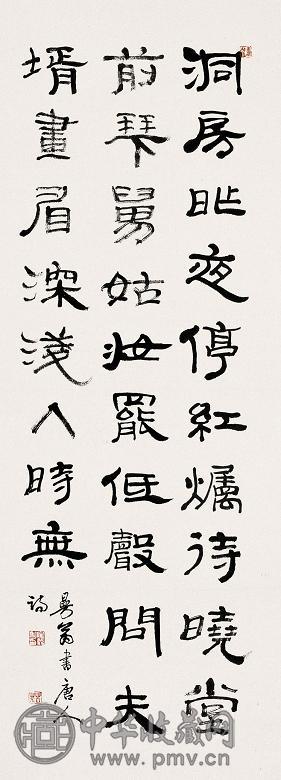 洞房昨夜停紅爥待曉堂
前拜舅姑妝罷低聲問夫
壻畫眉深淺入時無
曼翁書唐人
詩
中华收藏网
www.pmv.cn